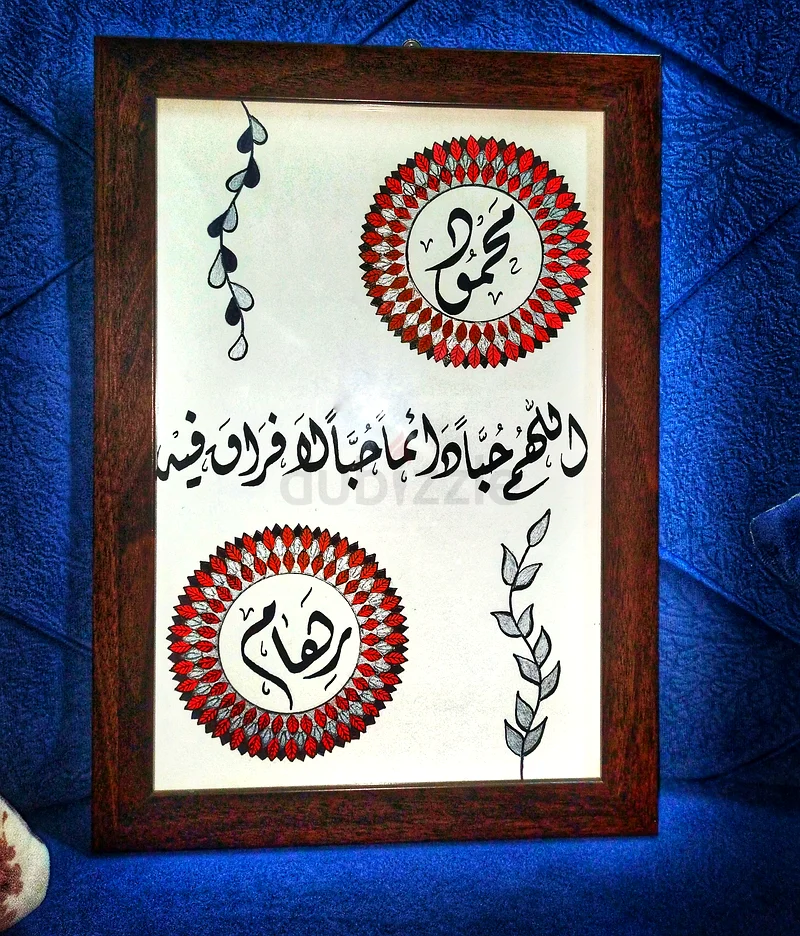 محمود
اللّهُم حُبَّاً دَائماً حُبَّاً لاَ فرَاق فيْه
dubizzle
رهام